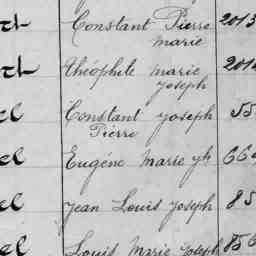 Constant Pierre 2013
marie
théophile marie 201
joseph
el Constant joseph 55
Pierre
el Eugène Marie jh 66
el Jean Louis joseph 85
el Louis Marie joseph 856